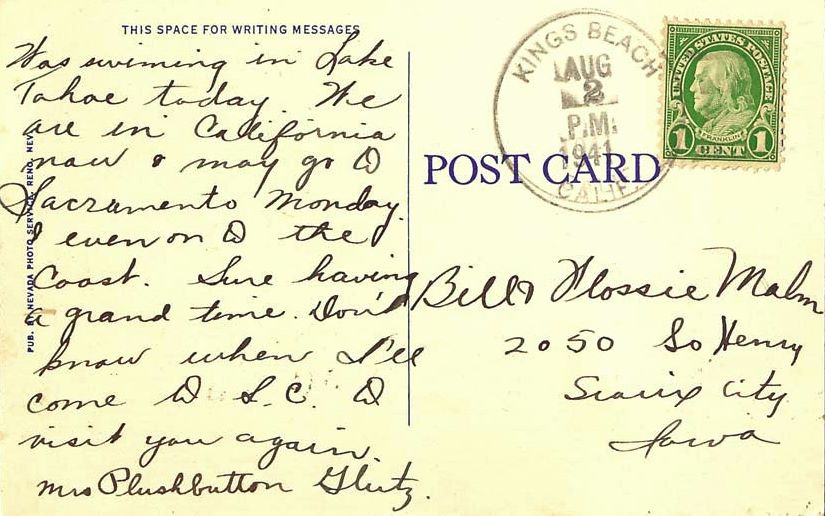 THIS SPACE FOR WRITING MESSAGES
Was swiming in Lake
Tahoe today. We
are in California
now & may go to
Sacramento Monday
& even on to the
Coast. Sure having
a grand time. Don't
know when I'll
come to S.C. to
visit you again.
Mrs Plushbutton Glutz.
PUB. BY NEVADA PHOTO SERVICE, RENO, NEV.
POST CARD
KINGS BEACH
AUG
2
P.M.
1941
CALIF.
UNITED STATES POSTAGE
FRANKLIN
1 CENT 1
Bill & Flossie Malm
2050 So Henry
Sioux City
Iowa